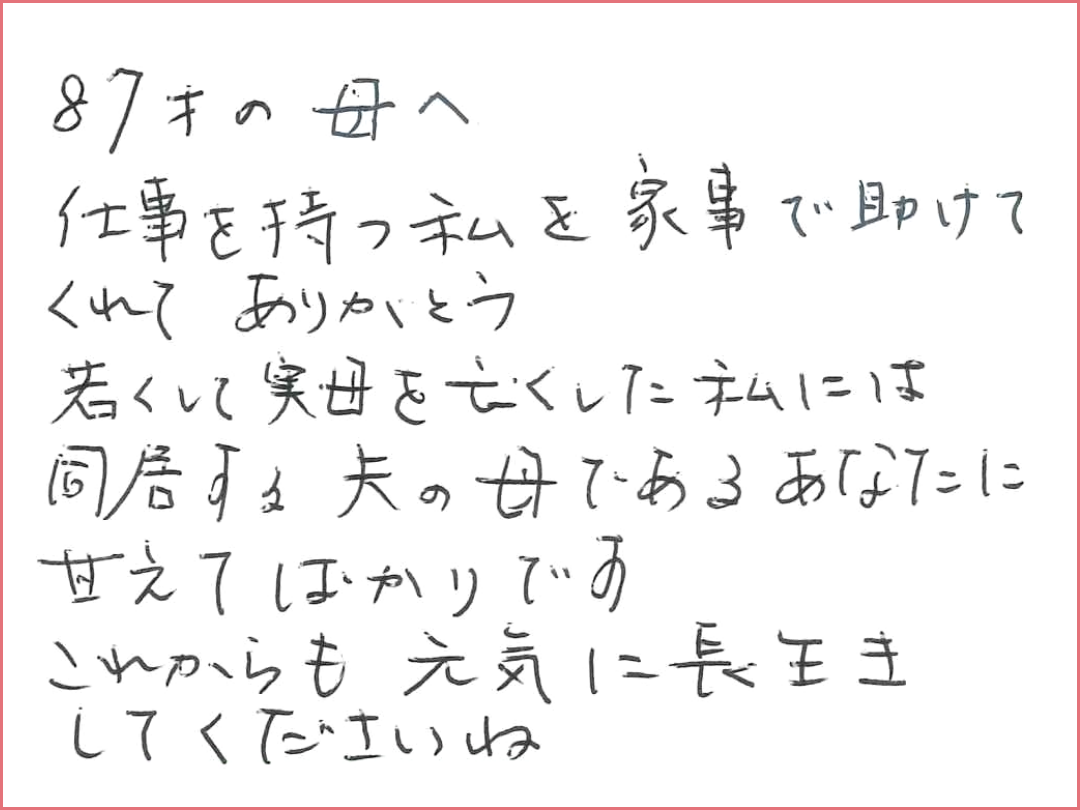 87才の母へ
仕事を持つ私を家事で助けて
くれてありがとう
若くして実母を亡くした私には
同居する夫の母であるあなたに
甘えてばかりです
これからも元気に長生き
してくださいね